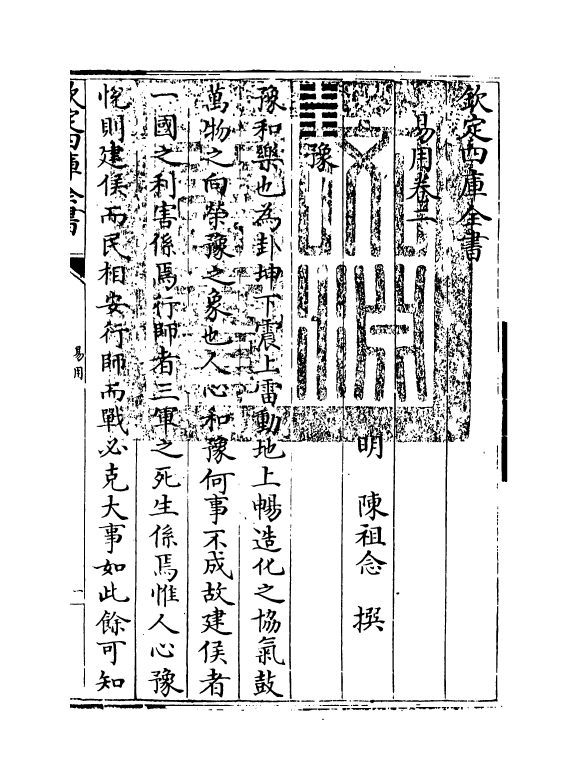 欽定四庫全書
易用卷二
明 陳祖念 撰
䷏豫
豫和樂也為卦坤下震上雷動地上暢造化之協氣鼓
萬物之向榮豫之象也人心和豫何事不成故建侯者
一國之利害係焉行師者三軍之死生係焉惟人心豫
悅則建侯而民相安行師而戰必克大事如此餘可知
欽定四庫全書
易用
一